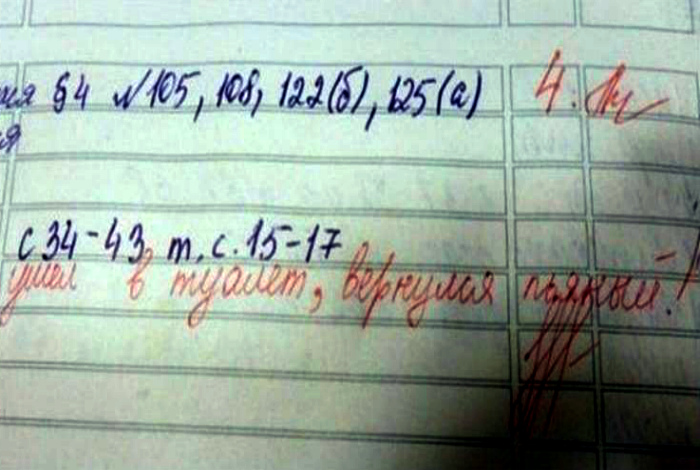 §4 №105, 108, 122(б), 125(а) 4.
с 34-43, т. с. 15-17
ушел в туалет, вернулся пьяный!